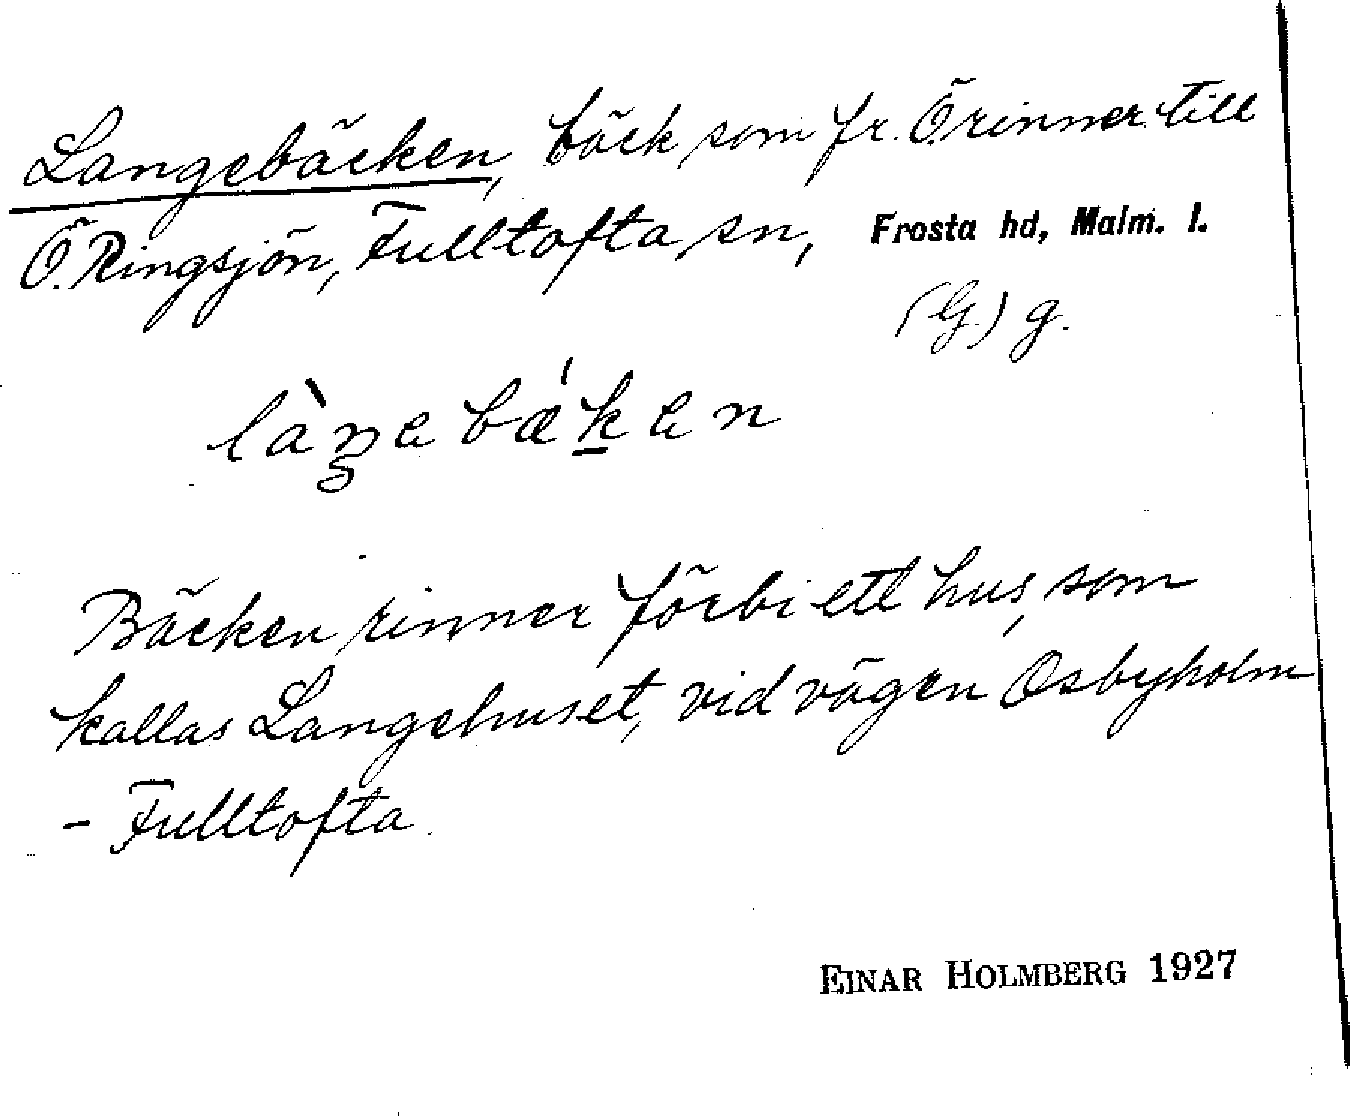 Langebäcken, bäck som fr. Ö. rinner till
Ö. Ringsjön, Fulltofta sn, Frosta hd, Malm. l.
(G.) g.
làŋebǽken
Bäcken rinner förbi ett hus, som
kallas Langehuset, vid vägen Osbyholm
- Fulltofta.
EINAR HOLMBERG 1927